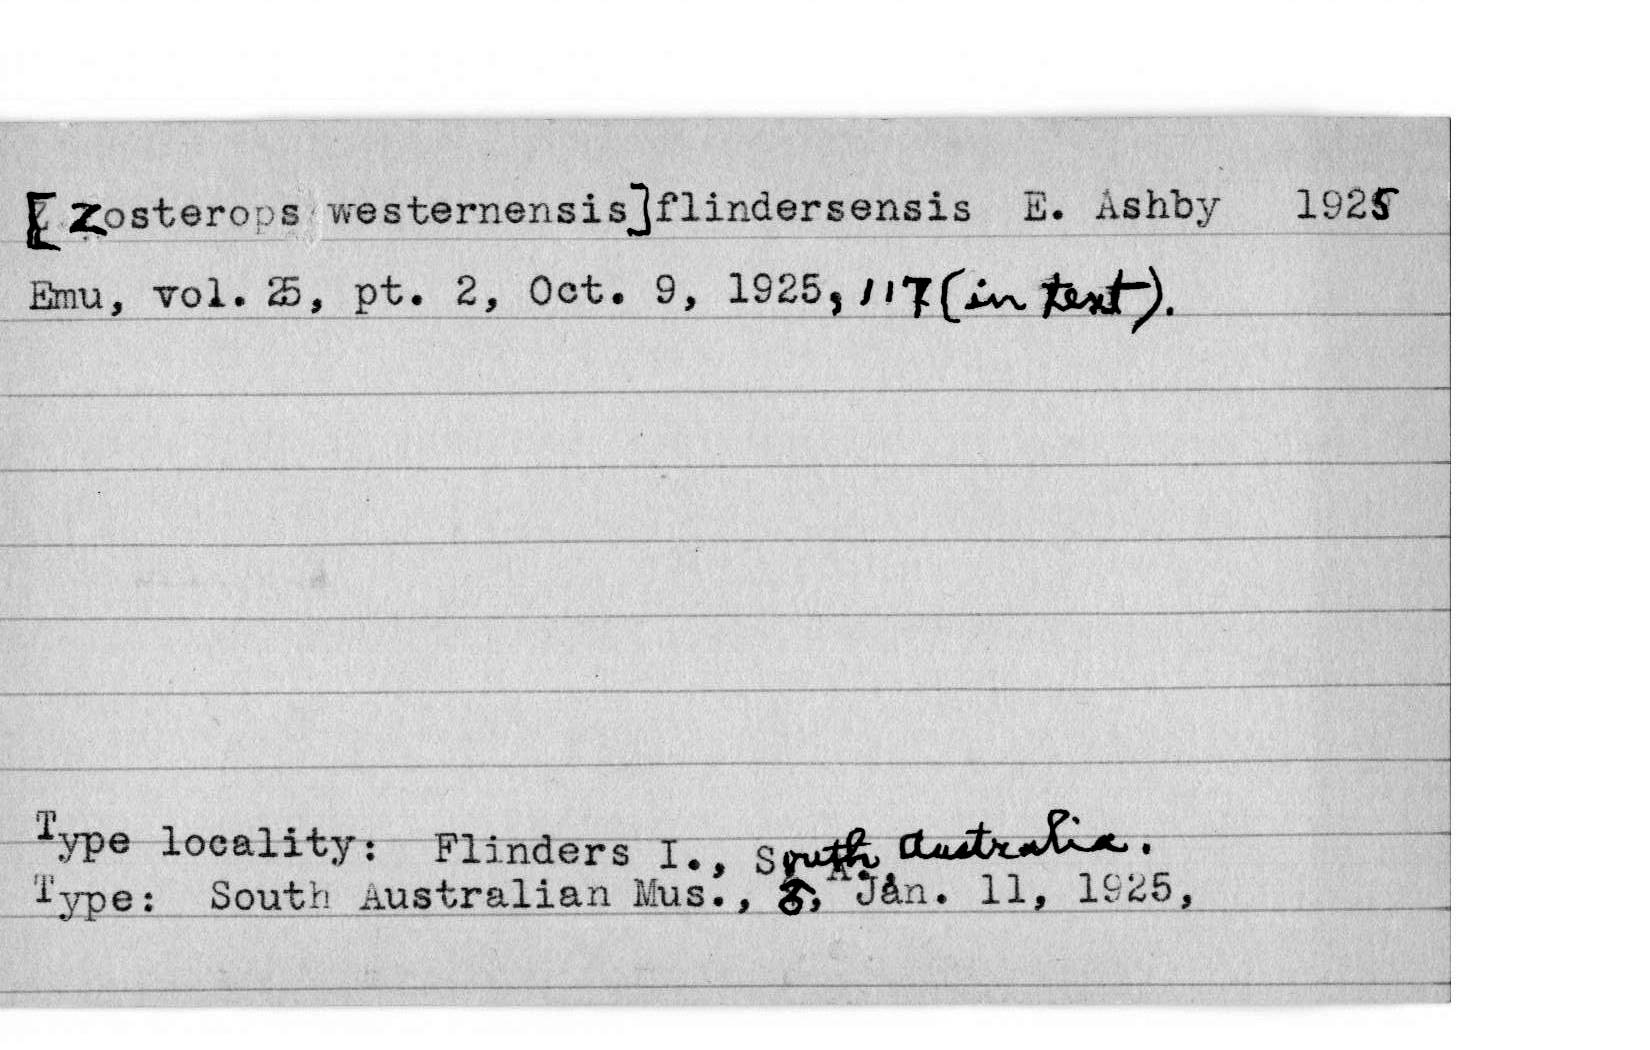 [Zosterops westernensis]flindersensis E. Ashby 1925
Emu, vol. 25, pt. 2, Oct. 9, 1925, 117 (in text).
Type locality: Flinders I., South Australia.
Type: South Australian Mus., ♂, Jan. 11, 1925,